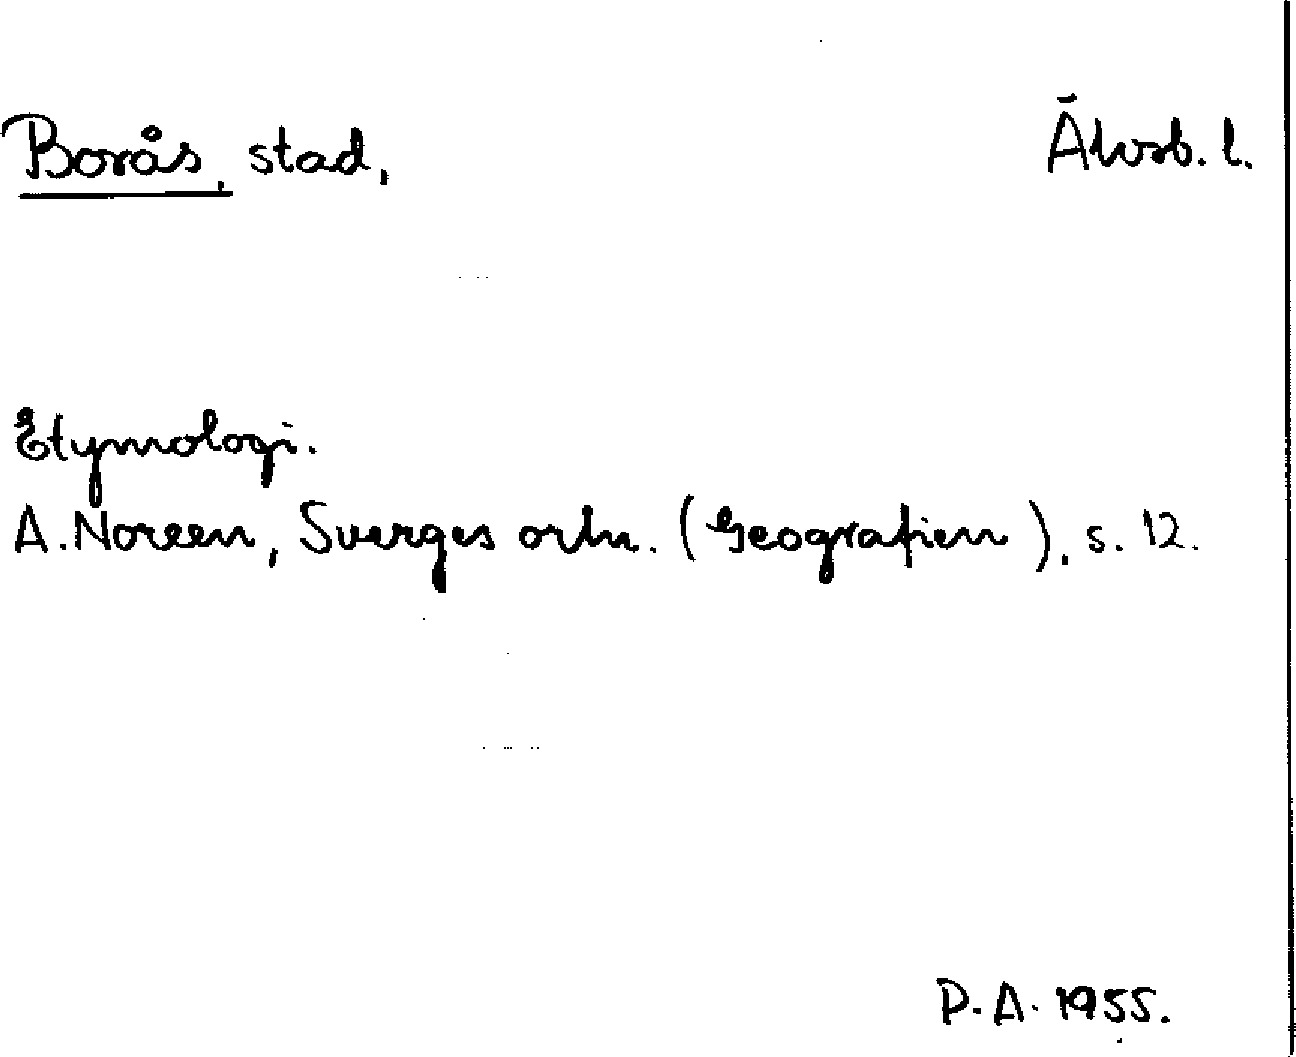 Borås, stad, Älvsb. l.
Etymologi.
A. Noreen, Sverges ortn. (Geografien), s. 12.
P. A. 1955.